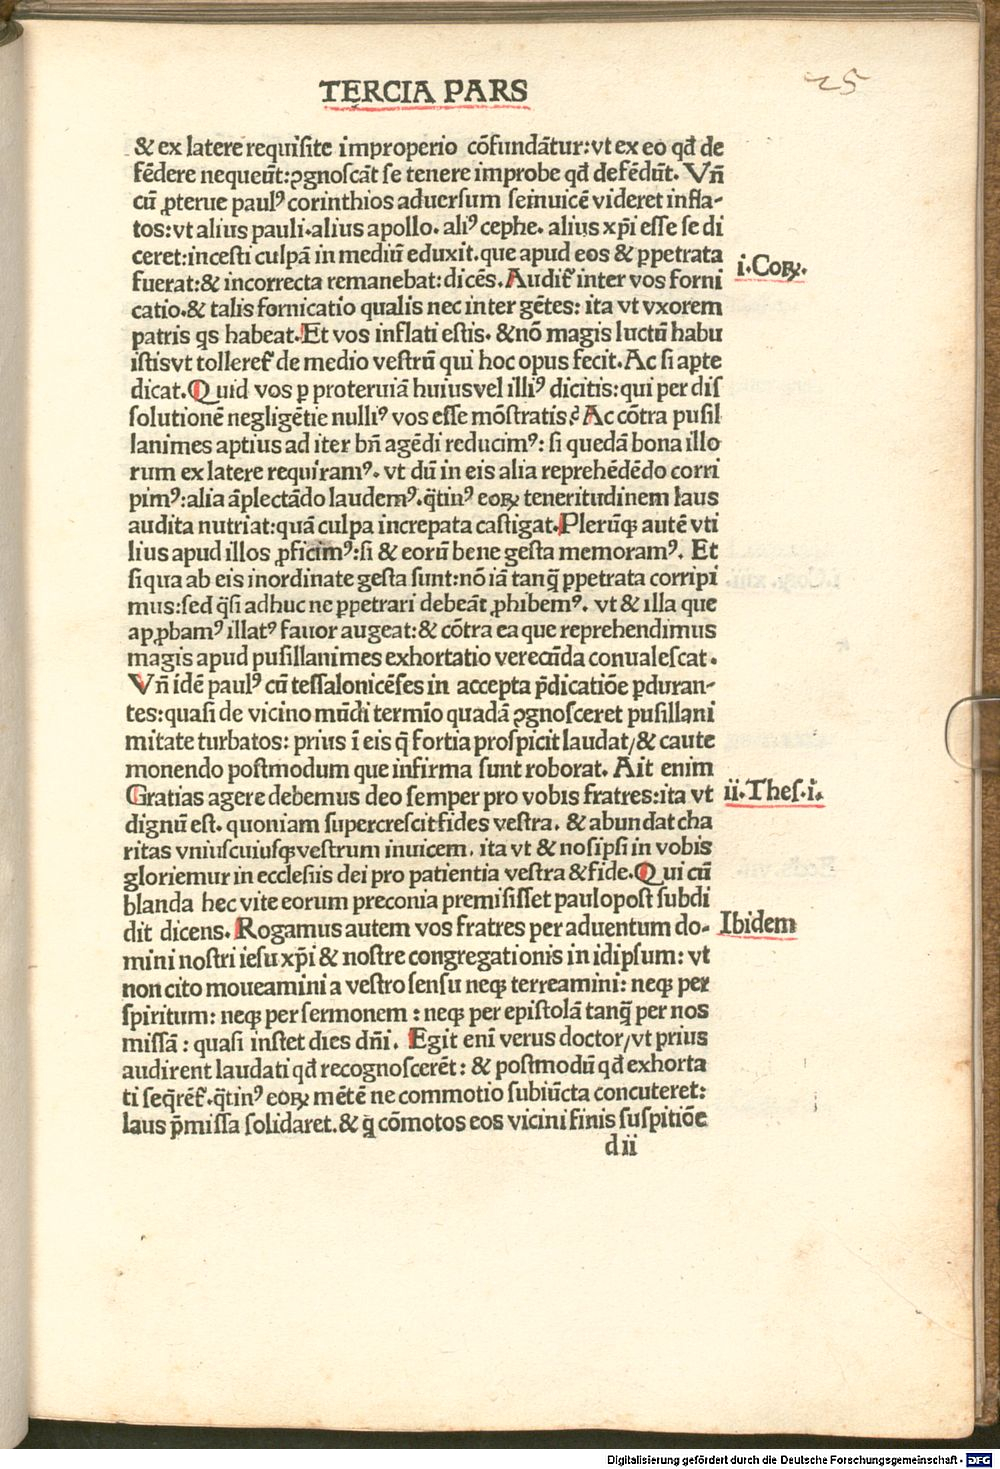 TERCIA PARS
25
& ex latere requisite improperio cōfundātur: vt ex eo qđ de
fēdere nequeūt: ꝯgnoscāt se tenere improbe qđ defēdūt. Vñ
cū ꝓterue paulꝰ corinthios aduersum seinuicē videret infla-
tos: vt alius pauli. alius apollo. aliꝰ cephe. alius xp̄i esse se di
ceret: incesti culpā in mediū eduxit. que apud eos & ꝑpetrata
fuerat: & incorrecta remanebat: dicēs. Audit᷑ inter vos forni
catio. & talis fornicatio qualis nec inter gētes: ita vt vxorem
patris qs habeat. Et vos inflati estis. & nō magis luctū habu
istis vt tolleret᷑ de medio vestrū qui hoc opus fecit. Ac si apte
dicat. Quid vos ꝑ proteruiā huius vel illiꝰ dicitis: qui per dis
solutionē negligētie nulliꝰ vos esse mōstratis? Ac cōtra pusil
lanimes aptius ad iter bñ agēdi reducimꝰ: si quedā bona illo
rum ex latere requiramꝰ. vt dū in eis alia reprehēdēdo corri
pimꝰ: alia āplectādo laudemꝰ. q̄tinꝰ eoꝝ teneritudinem laus
audita nutriat: quā culpa increpata castigat. Plerūqꝫ autē vti
lius apud illos ꝓficimꝰ: si & eorū bene gesta memoramꝰ. Et
siqua ab eis inordinate gesta sunt: nō iā tanqꝫ ꝑpetrata corripi
mus: sed q̄si adhuc ne ꝑpetrari debeāt ꝓhibemꝰ. vt & illa que
apꝓbamꝰ illatꝰ fauor augeat: & cōtra ea que reprehendimus
magis apud pusillanimes exhortatio verecūda conualescat.
Vñ idē paulꝰ cū tessalonicēses in accepta p̄dicatiōe ꝑduran-
tes: quasi de vicino mūdi termīo quadā ꝯgnosceret pusillani
mitate turbatos: prius ī eis q̄ fortia prospicit laudat/ & caute
monendo postmodum que infirma sunt roborat. Ait enim
Gratias agere debemus deo semper pro vobis fratres: ita vt
dignū est. quoniam supercrescit fides vestra. & abundat cha
ritas vniuscuiusqꝫ vestrum inuicem. ita vt & nos ipsi in vobis
gloriemur in ecclesiis dei pro patientia vestra & fide. Qui cū
blanda hec vite eorum preconia premisisset paulopost subdi
dit dicens. Rogamus autem vos fratres per aduentum do-
mini nostri iesu xp̄i & nostre congregationis in idipsum: vt
non cito moueamini a vestro sensu neqꝫ terreamini: neqꝫ per
spiritum: neqꝫ per sermonem: neqꝫ per epistolā tanqꝫ per nos
missā: quasi instet dies dñi. Egit enī verus doctor/ vt prius
audirent laudati qđ recognoscerēt: & postmodū qđ exhorta
ti seq̄rēt᷑. q̄tinꝰ eoꝝ mētē ne commotio subiūcta concuteret:
laus p̄missa solidaret. & q̇ cōmotos eos vicini finis suspitiōe
d ii
i. Coꝝ.
ii. Thes. i.
Ibidem
Digitalisierung gefördert durch die Deutsche Forschungsgemeinschaft - DFG